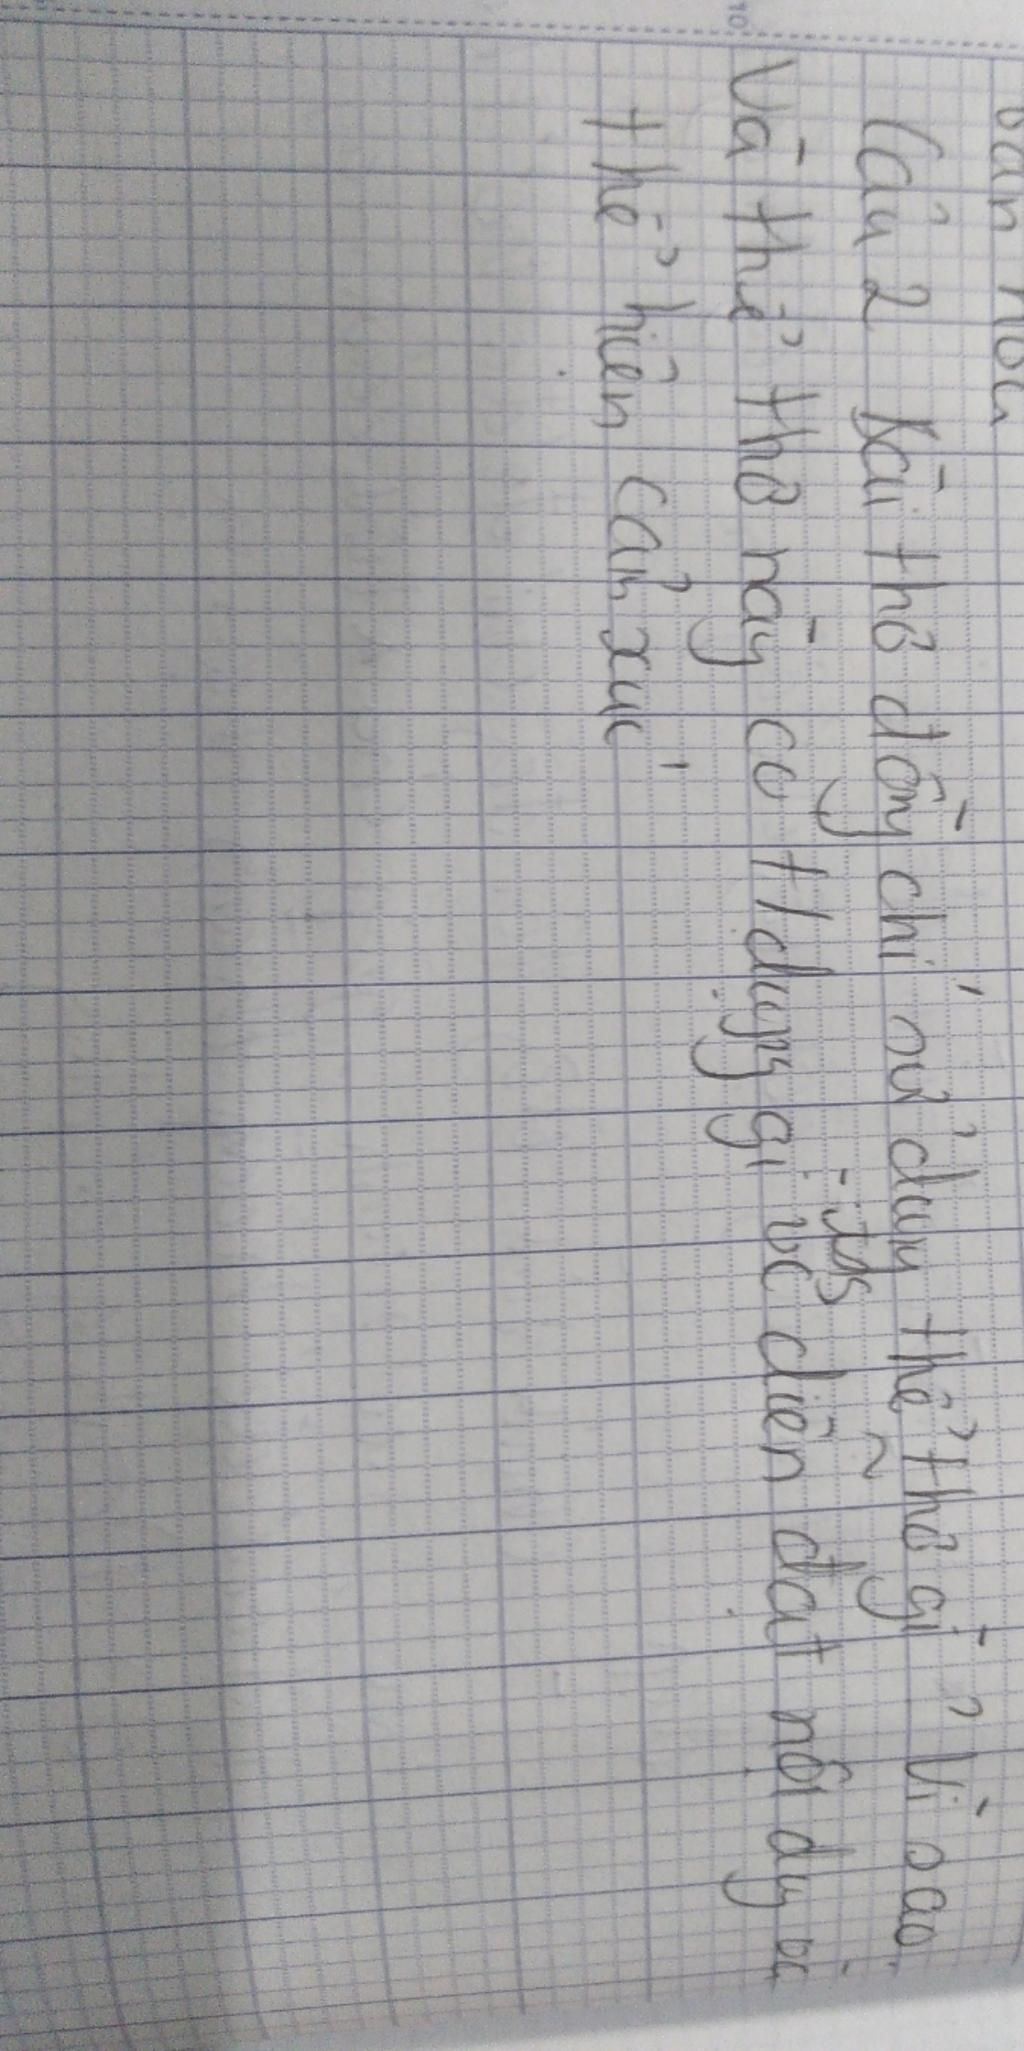 10
Câu 2 Bài thơ đồng chí sử dụng thể thơ gì ? Vì sao
Và thể thơ này có tdụng gì vc diễn đạt nội dg và
thể hiện cảm xúc